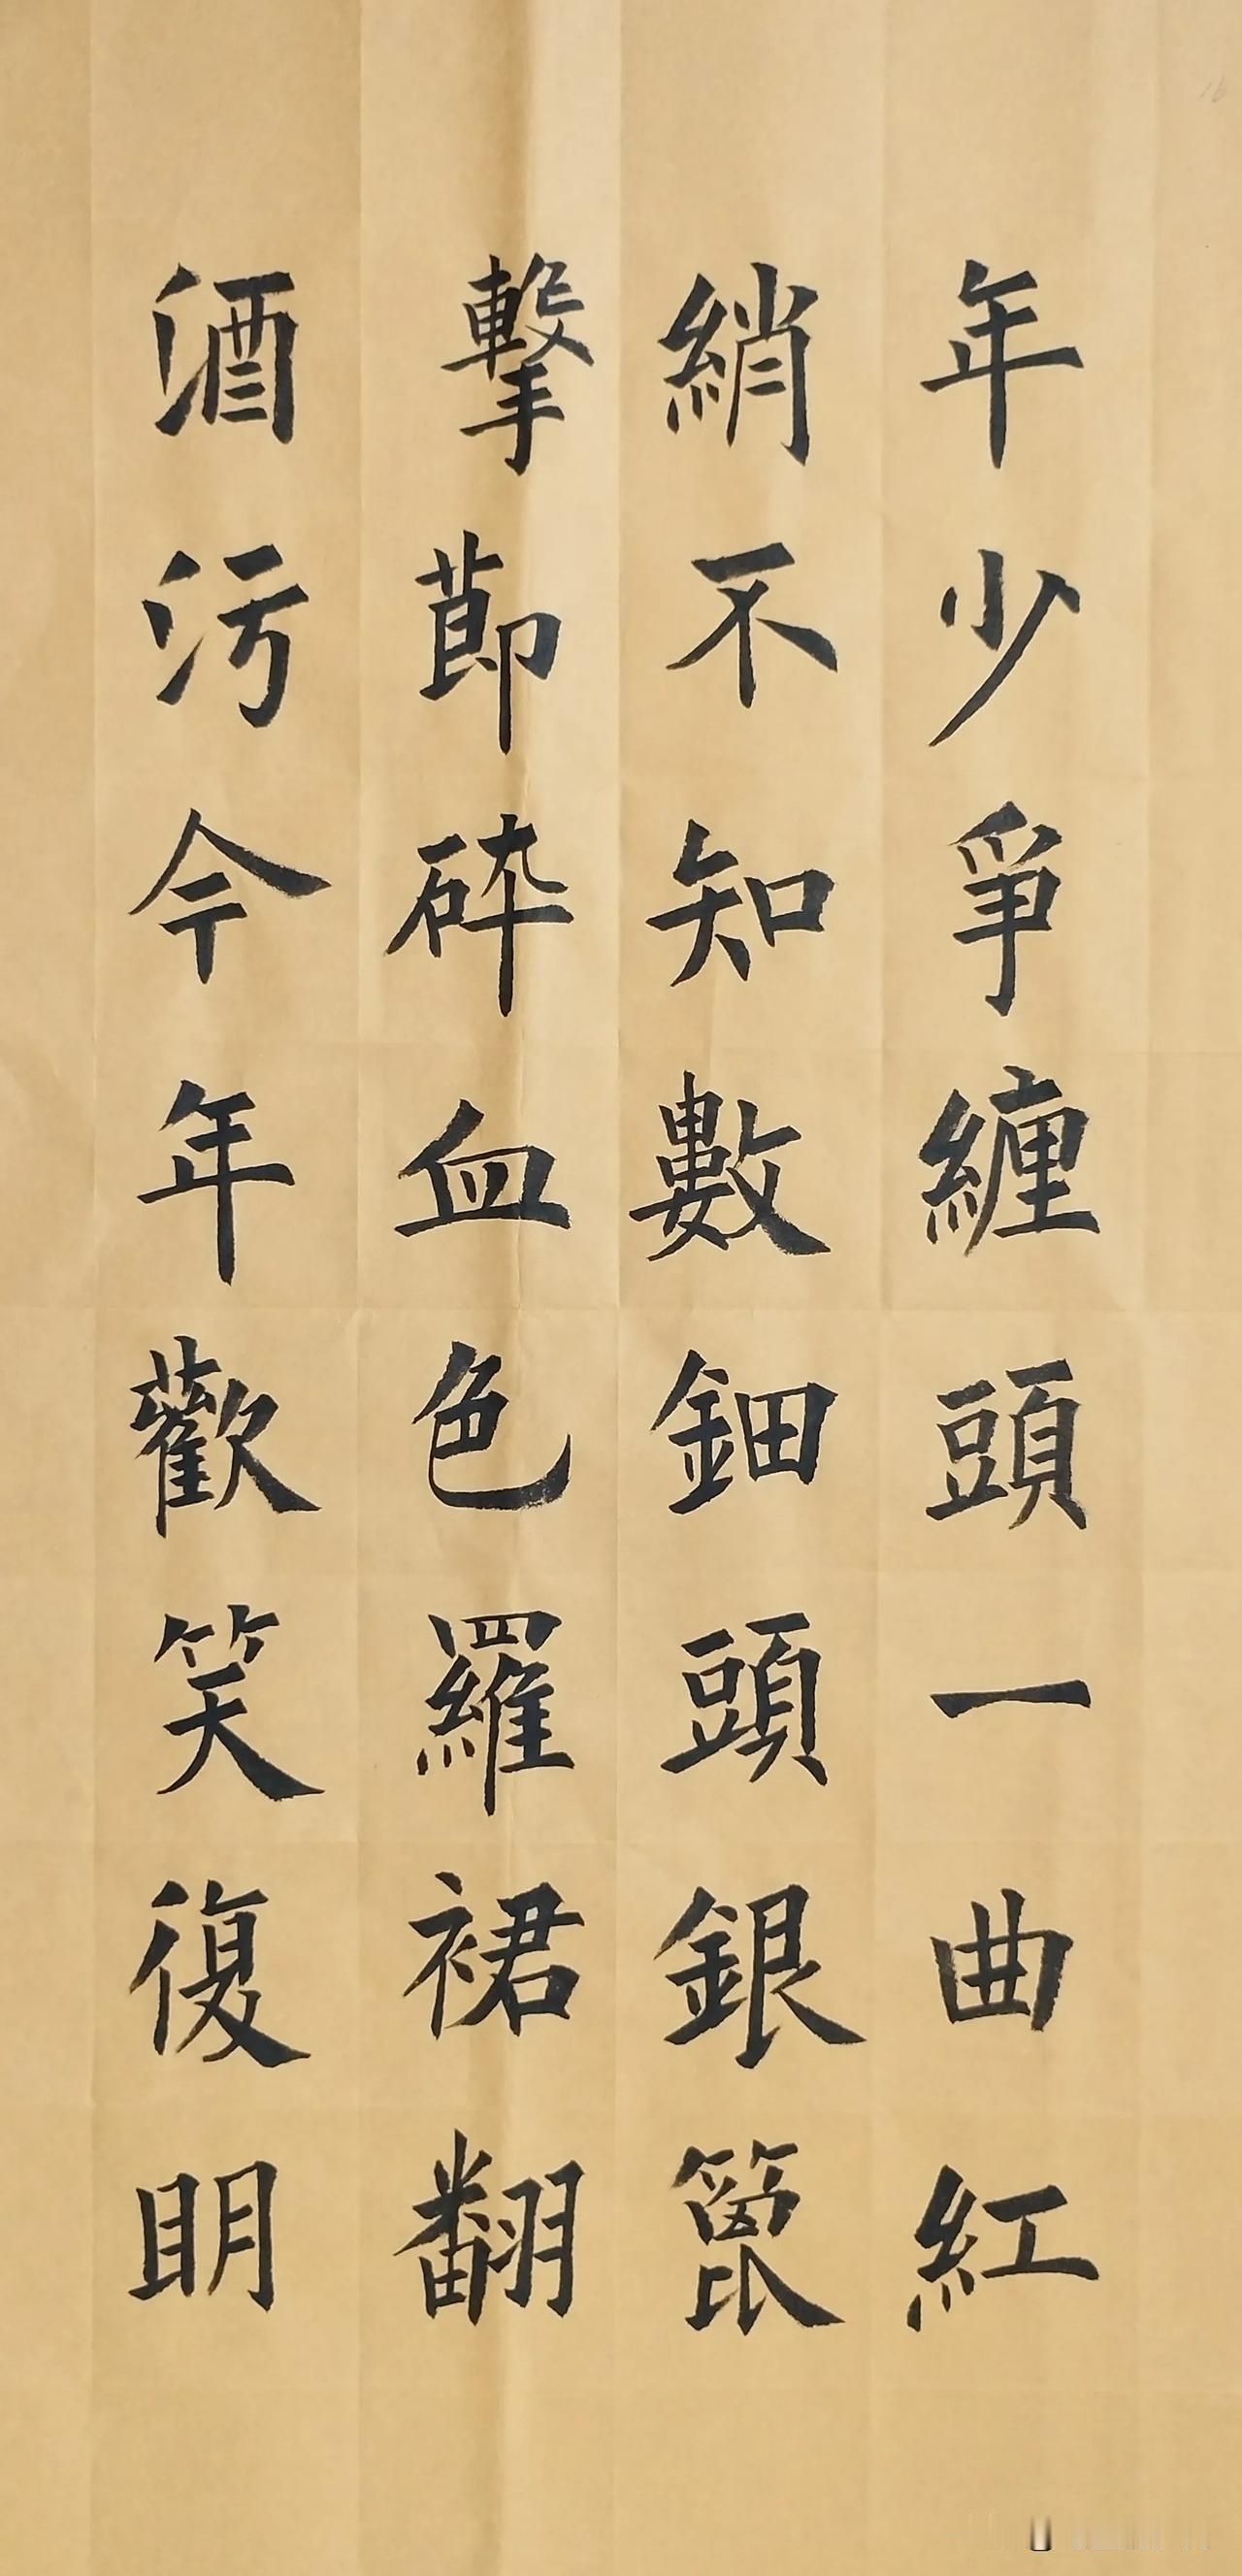 年少爭纏頭一曲紅
綃不知數鈿頭銀篦
擊莭砕血色羅裙翻
酒污今年歡笑復明